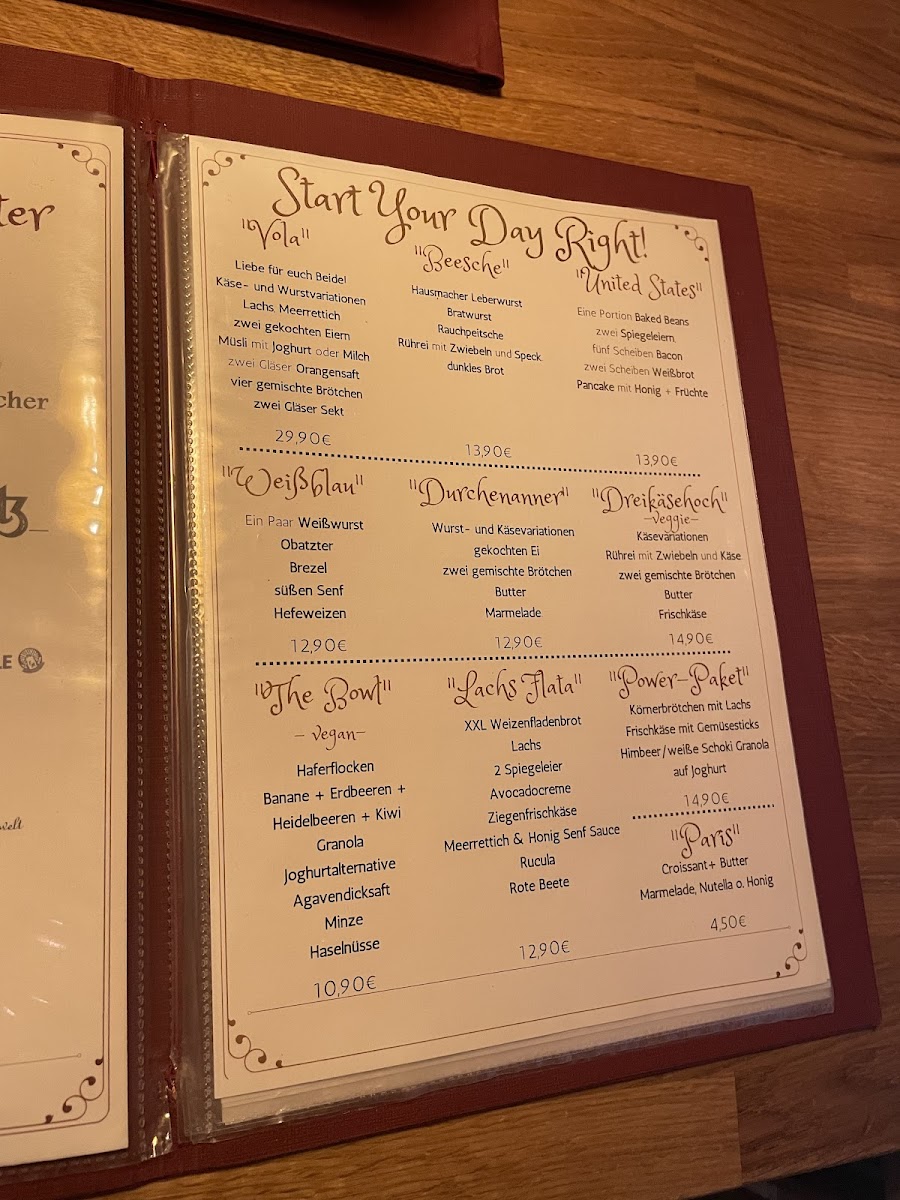 ter
cher
tz
LE
welt
Start Your Day Right!
"Vola"
Liebe für euch Beide!
Käse- und Wurstvariationen
Lachs, Meerrettich
zwei gekochten Eiern
Müsli mit Joghurt oder Milch
zwei Gläser Orangensaft
vier gemischte Brötchen
zwei Gläser Sekt
29,90€
"Beesche"
Hausmacher Leberwurst
Bratwurst
Rauchpeitsche
Rührei mit Zwiebeln und Speck
dunkles Brot
13,90€
"United States"
Eine Portion Baked Beans
zwei Spiegeleiern,
fünf Scheiben Bacon
zwei Scheiben Weißbrot
Pancake mit Honig + Früchte
13,90€
"Weißblau"
Ein Paar Weißwurst
Obatzter
Brezel
süßen Senf
Hefeweizen
12,90€
"Durchenanner"
Wurst- und Käsevariationen
gekochten Ei
zwei gemischte Brötchen
Butter
Marmelade
12,90€
"Dreikäsehoch"
-veggie-
Käsevariationen
Rührei mit Zwiebeln und Käse
zwei gemischte Brötchen
Butter
Frischkäse
14,90€
"The Bowl"
- vegan-
Haferflocken
Banane + Erdbeeren +
Heidelbeeren + Kiwi
Granola
Joghurtalternative
Agavendicksaft
Minze
Haselnüsse
10,90€
"Lachs Flata"
XXL Weizenfladenbrot
Lachs
2 Spiegeleier
Avocadocreme
Ziegenfrischkäse
Meerrettich & Honig Senf Sauce
Rucula
Rote Beete
12,90€
"Power-Paket"
Körnerbrötchen mit Lachs
Frischkäse mit Gemüsesticks
Himbeer/weiße Schoki Granola
auf Joghurt
14,90€
"Paris"
Croissant+ Butter
Marmelade, Nutella o. Honig
4,50€